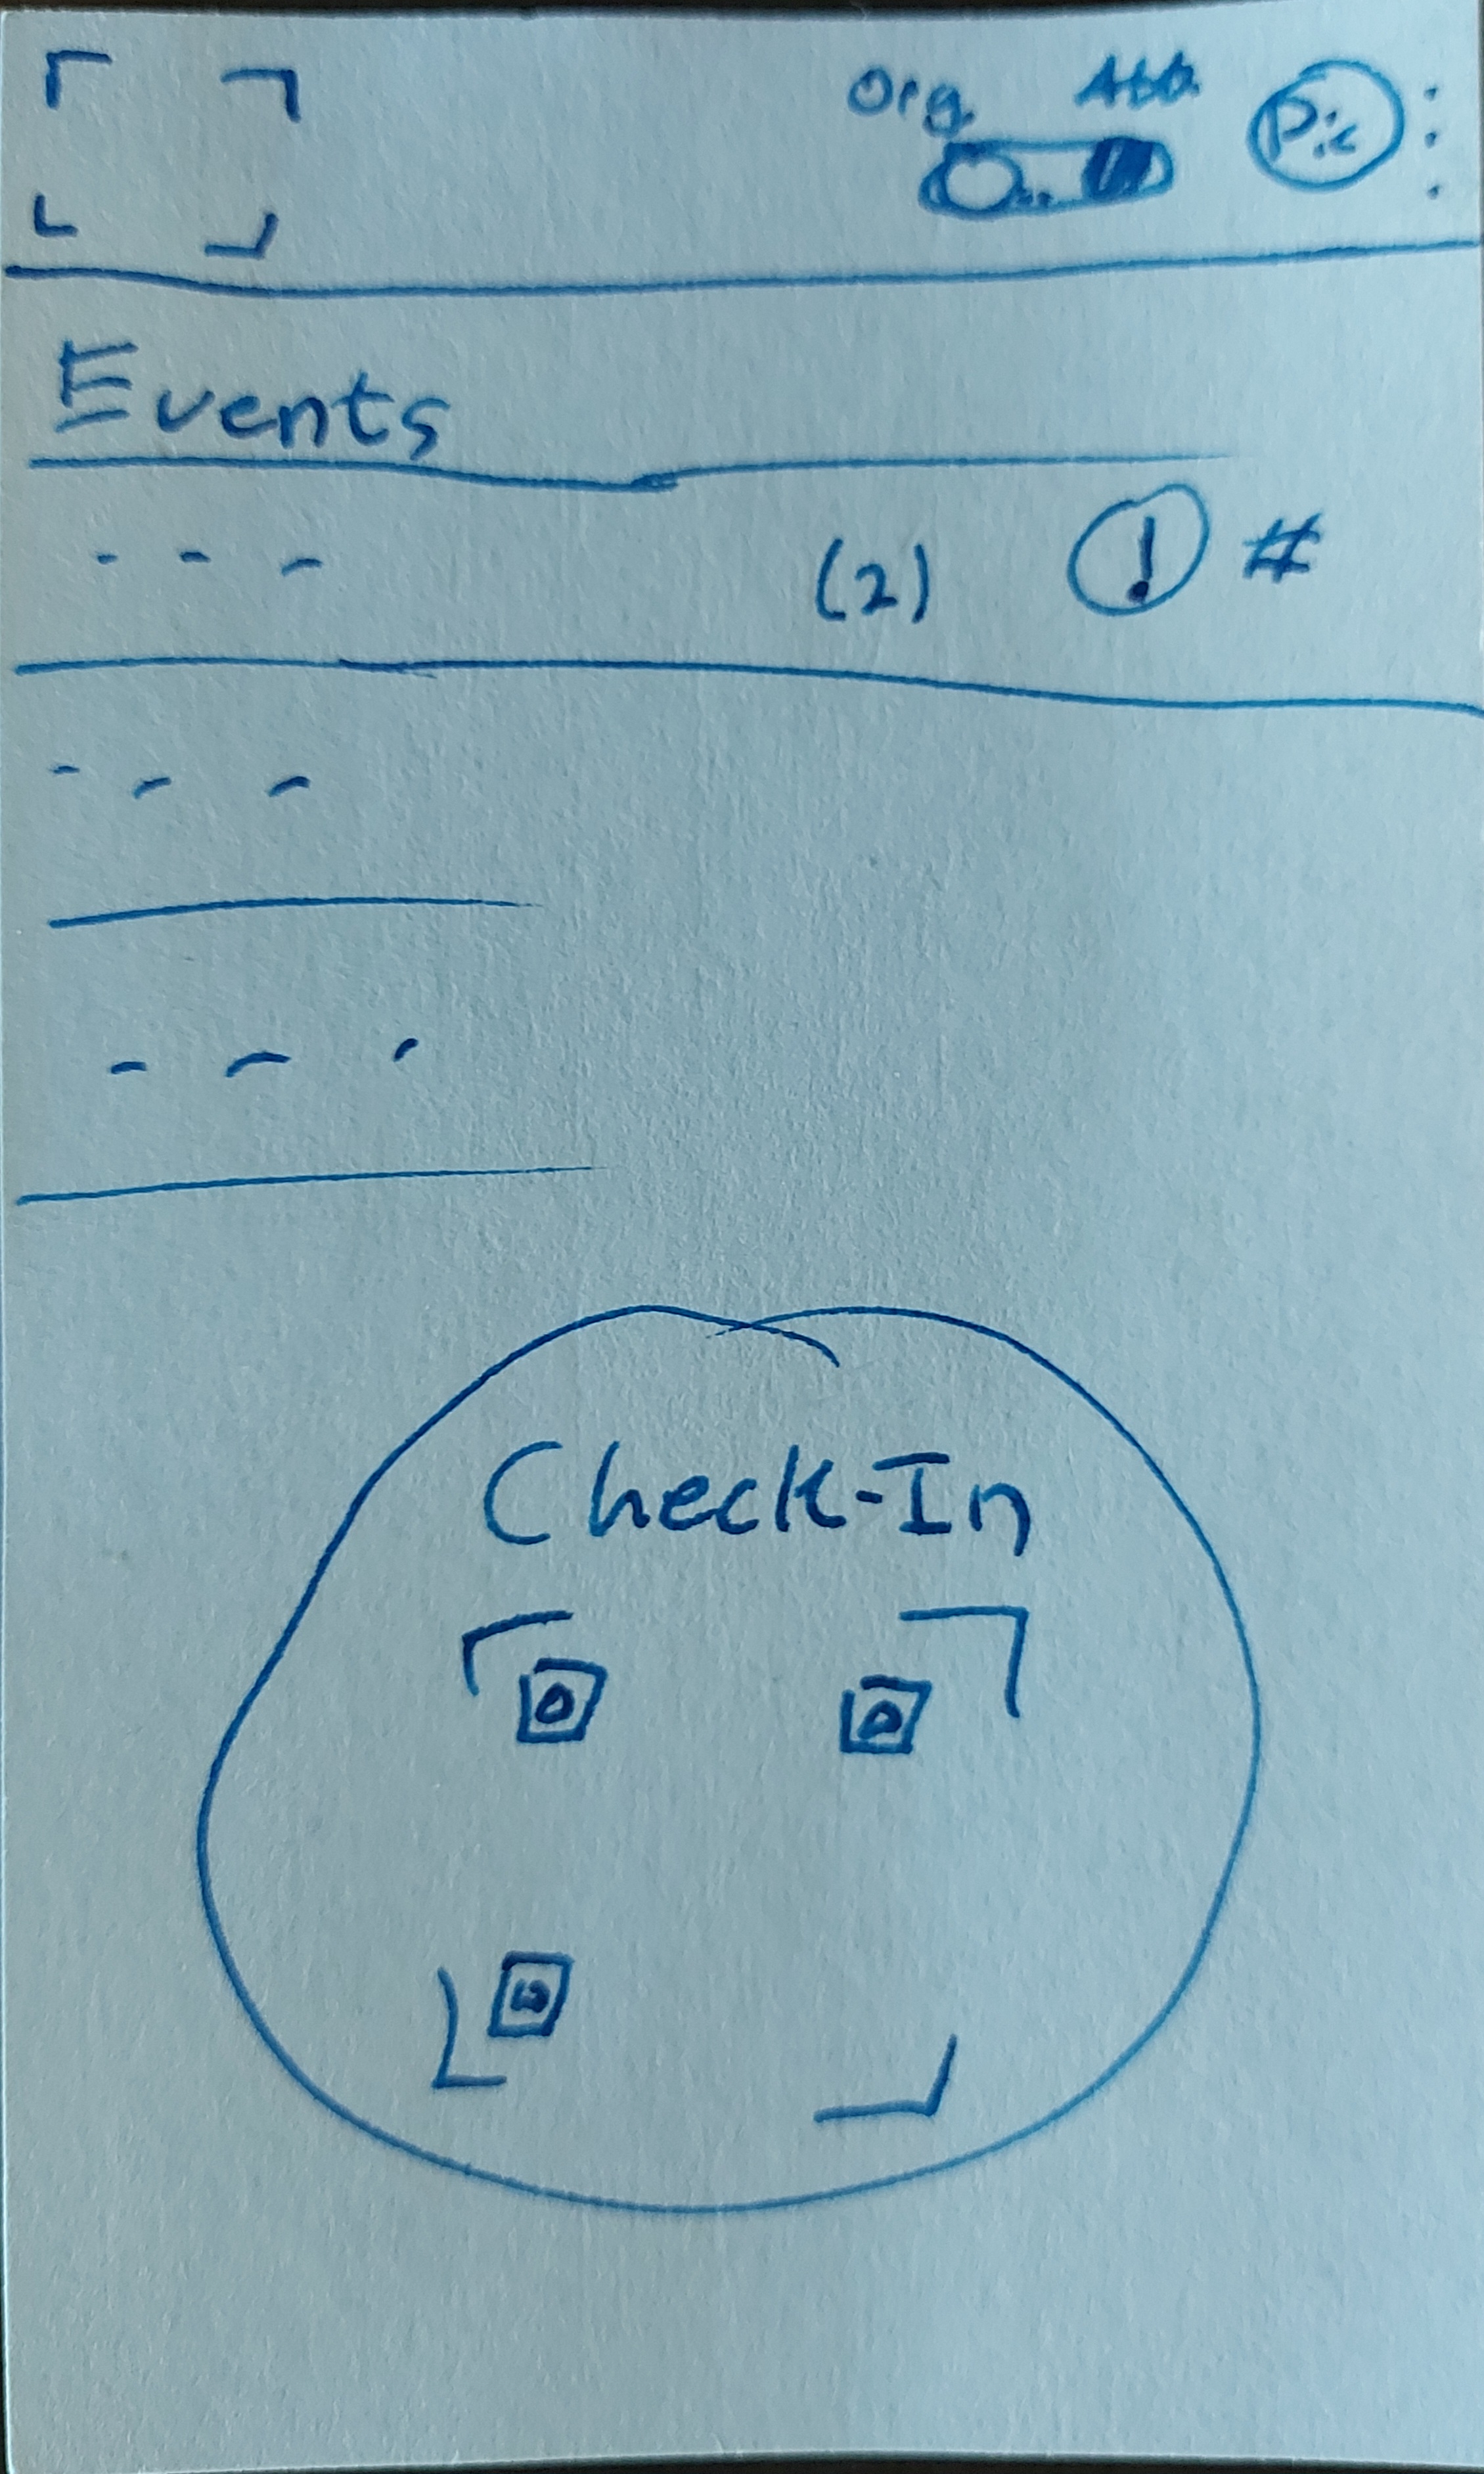 Org. Att.
Pic
Events
(2) ! #
Check-In